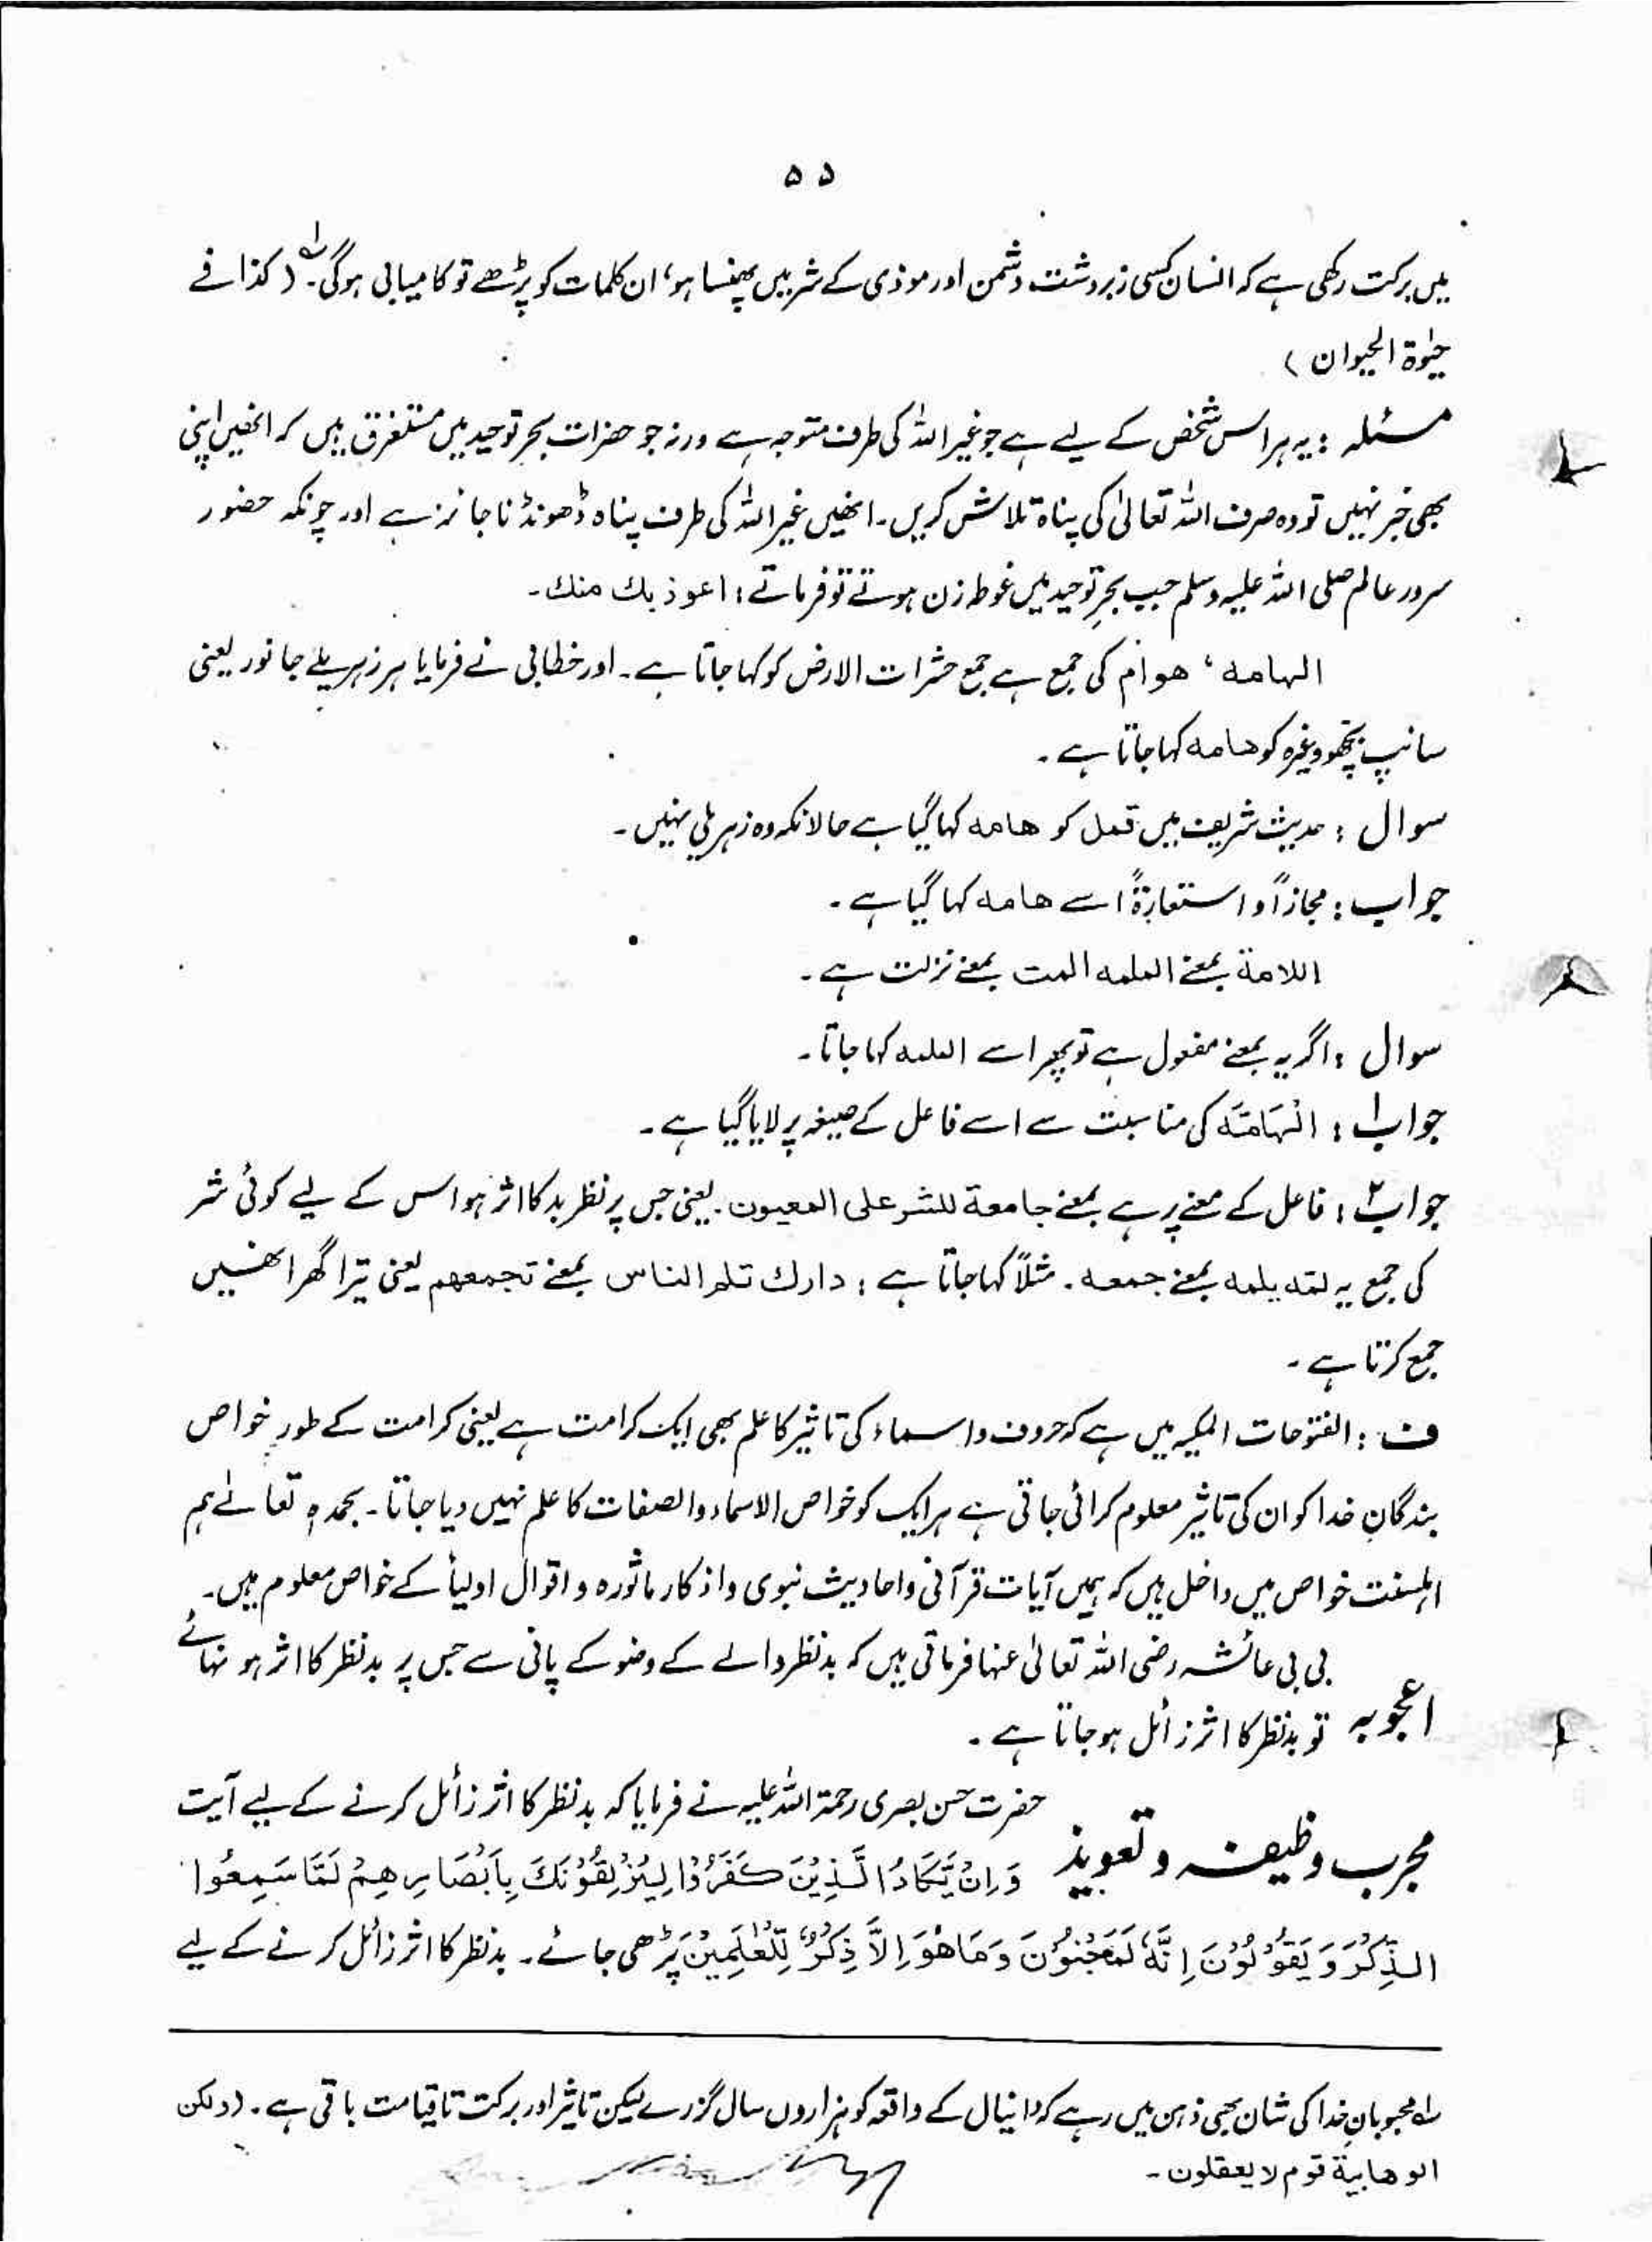 ۵۵
میں برکت رکھی ہے کہ انسان کسی زبردشت دشمن اور موذی کے شر میں پھنسا ہو، ان کلمات کو پڑھے تو کامیابی ہوگی۔ لہ (کذا فے
حیٰوۃ الحیوان)
مسئلہ : یہ ہر اس شخص کے لیے ہے جو غیر اللہ کی طرف متوجہ ہے ورنہ جو حضرات بحر توحید میں مستغرق ہیں کہ انھیں اپنی
بھی خبر نہیں تو وہ صرف اللہ تعالیٰ کی پناہ تلاش کریں۔ انھیں غیر اللہ کی طرف پناہ ڈھونڈنا جائز نہ ہے اور چونکہ حضور
سرور عالم صلی اللہ علیہ وسلم جب بحرِ توحید میں غوطہ زن ہوتے تو فرماتے : اعوذ بك منك۔
الہامه، ھوام کی جمع ہے جمع حشرات الارض کو کہا جاتا ہے۔ اور خطابی نے فرمایا ہر زہریلے جانور یعنی
سانپ بچھو وغیرہ کو ھامه کہا جاتا ہے۔
سوال : حدیث شریف میں قمل کو ھامه کہا گیا ہے حالانکہ وہ زہریلی نہیں۔
جواب : مجازاً و استعارۃً اسے ھامه کہا گیا ہے۔
اللامة بمعنے الملمه المت بمعنے نزلت ہے۔
سوال : اگر یہ بمعنے مفعول ہے تو پھر اسے الملمه کہا جاتا۔
جواب ۱ : الْہَامَّه کی مناسبت سے اسے فاعل کے صیغہ پر لایا گیا ہے۔
جواب ۲ : فاعل کے معنے پر ہے بمعنے جامعة للشر علی المعیون۔ یعنی جس پر نظر بد کا اثر ہو اس کے لیے کوئی شر
کی جمع یہ لمّه یلمه بمعنے جمعه۔ مثلاً کہا جاتا ہے : دارك تلم الناس بمعنے تجمعهم یعنی تیرا گھر انھیں
جمع کرتا ہے۔
ف : الفتوحات المکیہ میں ہے کہ حروف و اسماء کی تاثیر کا علم بھی ایک کرامت ہے یعنی کرامت کے طور خواص
بندگانِ خدا کو ان کی تاثیر معلوم کرائی جاتی ہے ہر ایک کو خواص الاسماء والصفات کا علم نہیں دیا جاتا۔ بحمدہٖ تعالےٰ ہم
اہلسنت خواص میں داخل ہیں کہ ہمیں آیات قرآنی و احادیث نبوی و اذکار ماثورہ و اقوال اولیأ کے خواص معلوم ہیں۔
بی بی عائشہ رضی اللہ تعالیٰ عنہا فرماتی ہیں کہ بدنظر والے کے وضو کے پانی سے جس پر بدنظر کا اثر ہو نہائے
اعجوبہ تو بدنظر کا اثر زائل ہو جاتا ہے۔
حضرت حسن بصری رحمۃ اللہ علیہ نے فرمایا کہ بدنظر کا اثر زائل کرنے کے لیے آیت
مجرب وظیفہ و تعویذ وَ اِنْ یَّکَادُ الَّذِیْنَ کَفَرُوْا لَیُزْلِقُوْنَكَ بِاَبْصَارِھِمْ لَمَّا سَمِعُوا
الذِّکْرَ وَ یَقُوْلُوْنَ اِنَّهٗ لَمَجْنُوْنَ وَ مَا ھُوَ اِلَّا ذِکْرٌ لِّلْعٰلَمِیْنَ پڑھی جائے۔ بدنظر کا اثر زائل کرنے کے لیے
لہ محبوبانِ خدا کی شان بھی ذہن میں رہے کہ دانیال کے واقعہ کو ہزاروں سال گزرے لیکن تاثیر اور برکت تا قیامت باقی ہے۔ (ولکن
الوھابیة قوم لا یعقلون۔